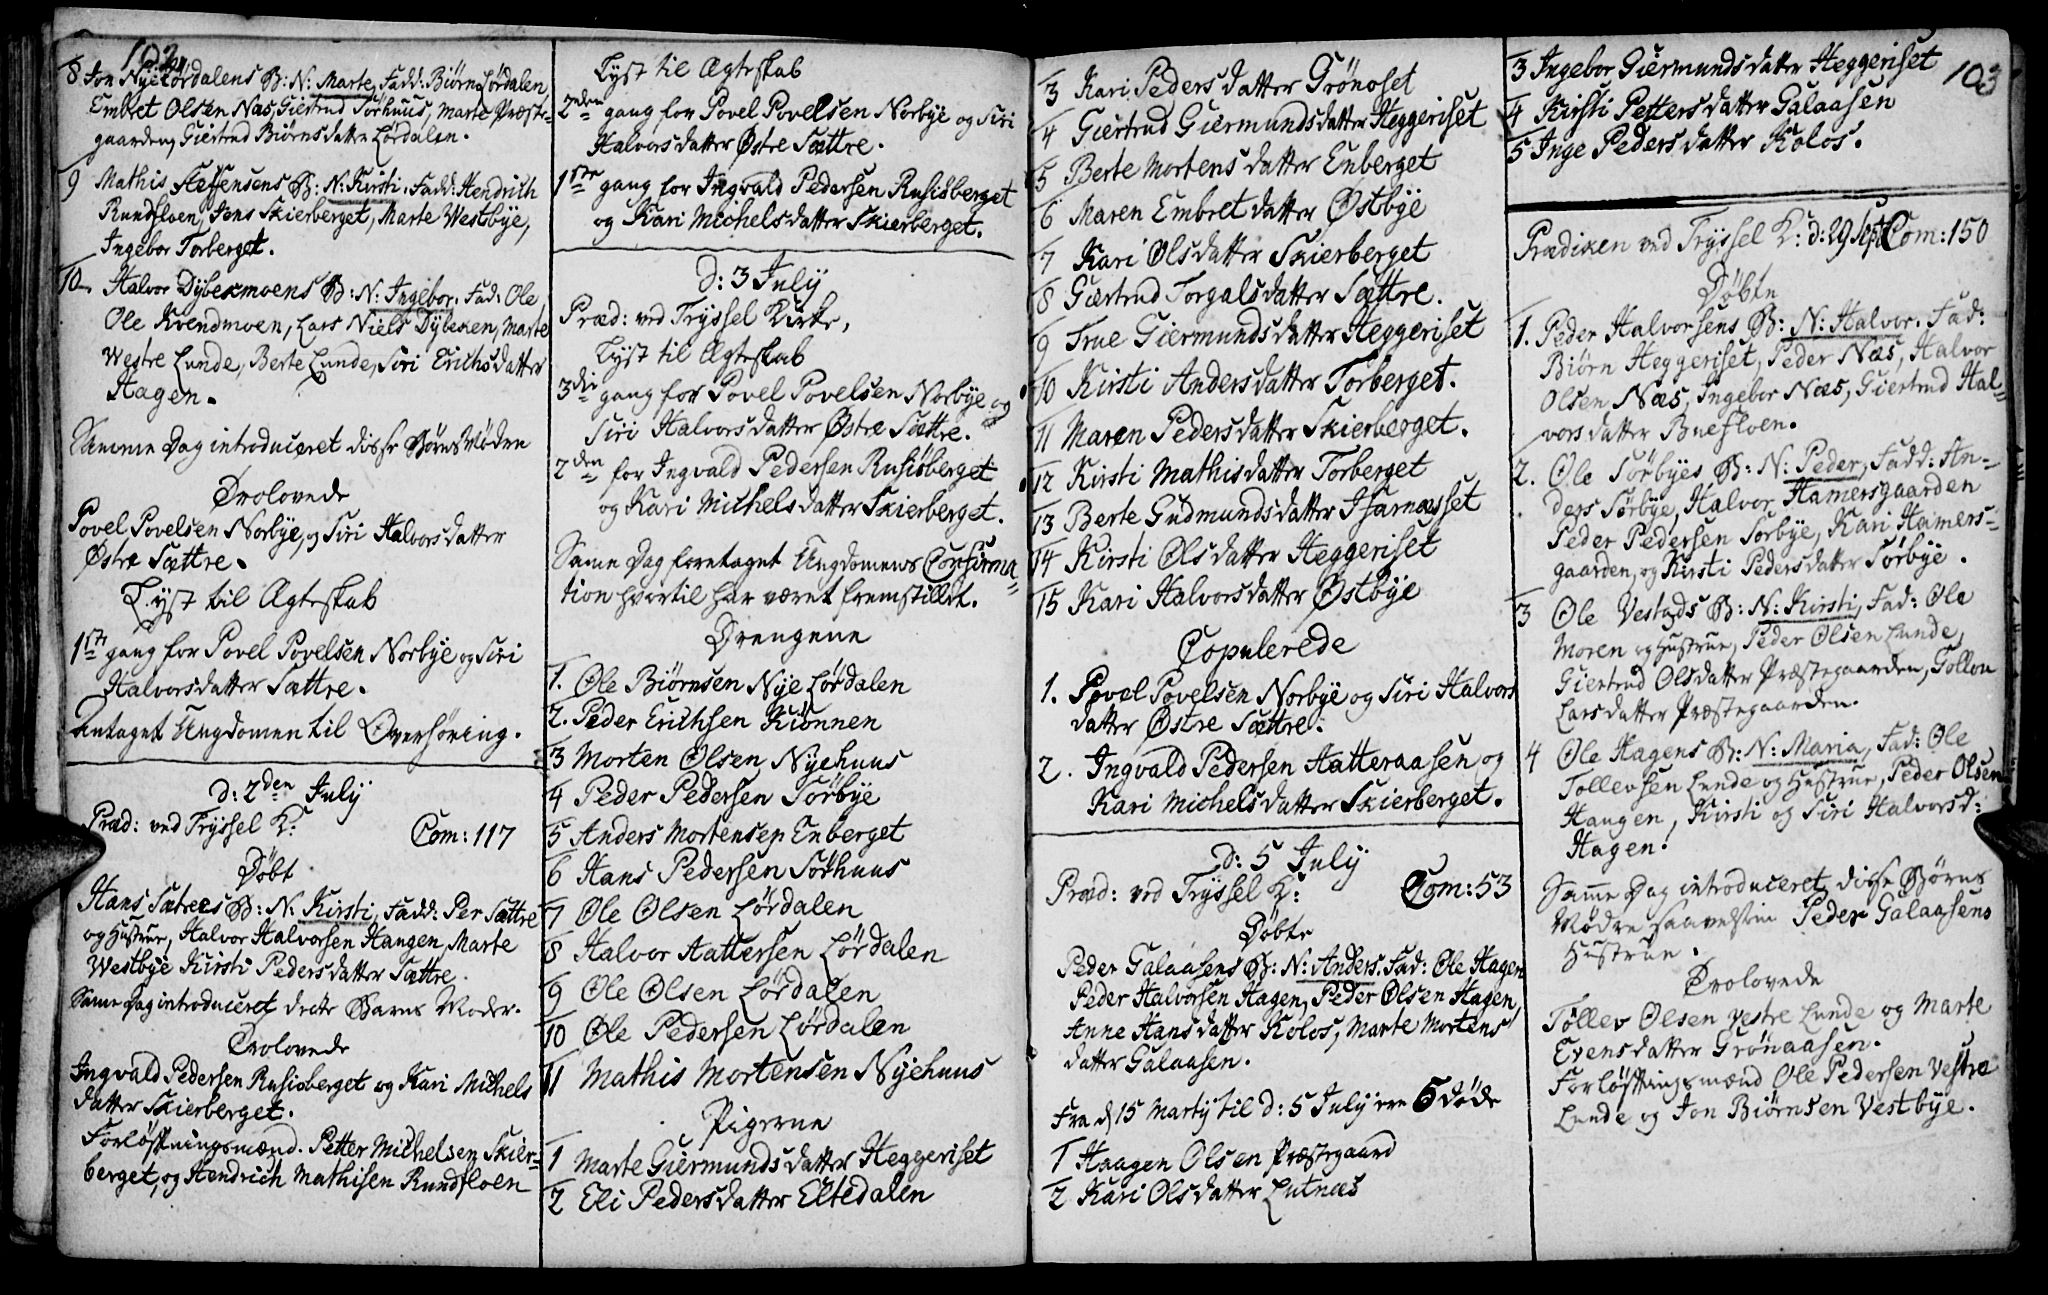 102.
8 Jon Nye Lørdalens B: N: Marte, Fadd: Biørn Lørdalen
Embret Olsen Næs, Giertrud Sørhuus, Marte Præste-
gaarden, Giertrud Biørnsdatter Lørdalen.
9 Mathis Steffensens B: N: Kirsti. Fadd: Hendrich
Rundfloen, Jens Skierberget, Marte Westbye,
Ingebor Torberget.
10 Halvor Dybexmoens B: N: Ingebor. Fad: Ole
Ole Kvendmoen, Lars Niels Dybexen, Marte
Westre Lunde, Berte Lunde, Siri Erichsdatter
Hagen.
Samme Dag introduceret disse Børns Mødre
Trolovede
Povel Povelsen Norbye, og Siri Halvorsdatter
Østre Sættre.
Lyst til Ægteskab
1ste gang for Povel Povelsen Norbye og Siri
Halvorsdatter Sættre.
Antaget Ungdomen til Overhøring.
d: 2den July
Præd: ved Tryssel K: Com: 117
Døbt
Hans Sætres B: N: Kirsti, Fadd: Per Sættre
og Hustrue, Halvor Halvorsen Haugen, Marte
Westbye Kirsti Pedersdatter Sættre.
Samme Dag introduceret dette Barns Moder.
Trolovede
Ingvald Pedersen Rusisberget og Kari Michels
datter Skierberget.
Forløftningsmænd. Petter Michelsen Skier-
berget, og Hendrich Mathisen Rundfloen
Lyst til Ægteskab
2den gang for Povel Povelsen Norbye og Siri
Halvorsdatter Østre Sættre.
1ste gang for Ingvald Pedersen Rusisberget
og Kari Michelsdatter Skierberget.
d: 3 July
Præd: ved Tryssel Kirke,
Lyst til Ægteskab
3die gang for Povel Povelsen Norbye og
Siri Halvorsdatter Østre Sættre.
2den for Ingvald Pedersen Rusisberget
og Kari Michelsdatter Skierberget.
Same Dag foretaget Ungdomens Confirma-
tion hvortil har været fremstillet.
Drengene
1. Ole Biørnsen Nye Lørdalen
2. Peder Erichsen Kiønnen
3 Morten Olsen Nyehuus
4 Peder Pedersen Sørbye
5 Anders Mortensen Enberget
6 Hans Pedersen Sørhuus
7 Ole Olsen Lørdalen
8 Halvor Hattersen Lørdalen
9 Ole Olsen Lørdalen
10 Ole Pedersen Lørdalen
11 Mathis Mortensen Nyehuus
Pigerne
1 Marte Giermundsdatter Heggeriset
2 Eli Pedersdatter Eltedalen
3 Kari Pedersdatter Grønoset
4 Giertrud Giermundsdatter Heggeriset
5 Berte Mortensdatter Enberget
6 Maren Embretdatter Østbye
7 Kari Olsdatter Skierberget
8 Giertrud Torgalsdatter Sættre.
9 True Giermundsdatter Heggeriset
10 Kirsti Andersdatter Torberget.
11 Maren Pedersdatter Skierberget.
12 Kirsti Mathisdatter Torberget
13 Berte Gudmundsdatter
14 Kirsti Olsdatter Heggeriset
15 Kari Halvorsdatter Østbye
Copulerede
1. Povel Povelsen Norbye og Siri Halvors
datter Østre Sættre.
2. Ingvald Pedersen Hatteraasen og
Kari Michelsdatter Skierberget.
d: 5 July
Præd: ved Tryssel K: Com: 53
Døbte
Peder Galaasens B: N: Anders. Fad: Ole Hagen
Peder Halvorsen Hagen, Peder Olsen Hagen,
Anne Hansdatter Kolos, Marte Mortens
datter Galaasen.
Fra d 15 Martij til d: 5 July ere 5 døde
1 Haagen Olsen Præstegaard
2 Kari Olsdatter Lutnæs
103
3 Ingebor Giermundsdatter Heggeriset
4 Kirsti Pettersdatter Galaasen
5 Inge Pedersdatter Kolos.
Prædiken ved Tryssel K: d: 29 Sept Com: 150
Døbte
1. Peder Halvorsens B: N: Halvor. Fad:
Biørn Heggeriset, Peder Næs, Halvor
Olsen Næs, Ingebor Næs, Giertrud Hal-
vorsdatter Buefloen.
2. Ole Sørbyes B: N: Peder, Fadd: An-
ders Sørbye, Halvor Hamersgaarden
Peder Pedersen Sørbye, Kari Hamers-
gaarden, og Kirsti Pedersdatter Sørbye.
3 Ole Vestads B: N: Kirsti, Fad: Ole
Moren og Hustrue, Peder Olsen Lunde,
Giertrud Olsdatter Præstegaarden,
Larsdatter Præstegaarden.
4 Ole Hagens B: N: Maria, Fad: Ole
Tollevsen Lunde og Hustrue, Peder Olsen
Haugen, Kirsti og Siri Halvorsd:
Hagen.
Samme Dag introduceret disse Børns
Mødre saavelsom Peder Galaasens
Hustrue.
Trolovede
Tollev Olsen Vestre Lunde og Marte
Evensdatter Grønaasen.
Forløftningsmænd Ole Pedersen Vestre
Lunde og Jon Biørnsen Vestbye.